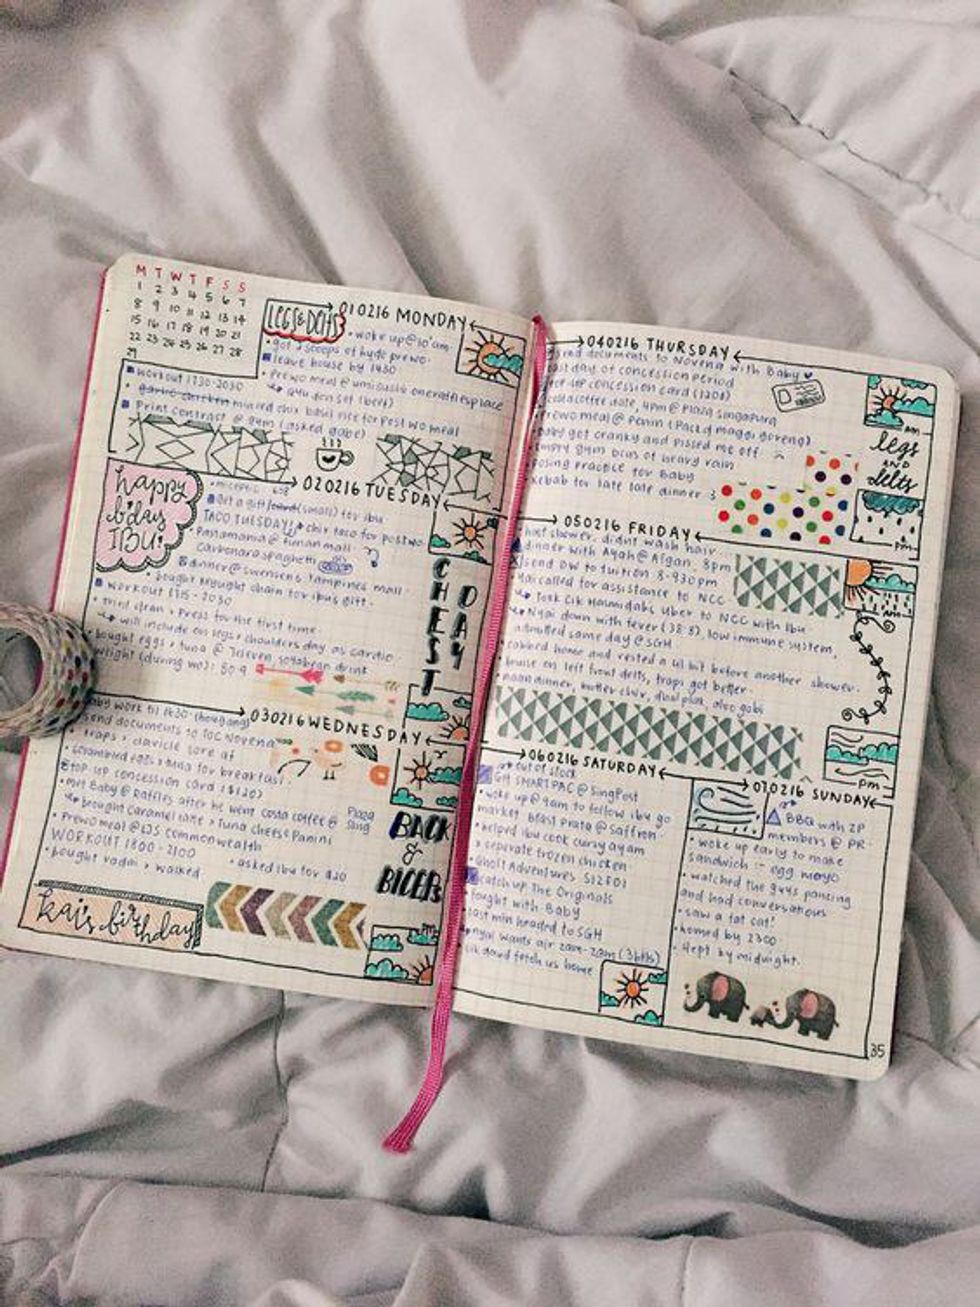 M T W T F S S
1 2 3 4 5 6 7
8 9 10 11 12 13 14
15 16 17 18 19 20 21
22 23 24 25 26 27 28
29
LEGS & DELTS
010216 MONDAY
• woke up @ 10
• got 2 scoops of hyde prewo.
leave house by 1430
• prewo meal @ umisushi onerafflesplace
set (beef)
workout 1730-2030
• garlic chicken minced chix basil rice for post wo meal
Print contract @ gym (asked gabe)
020216 TUESDAY
happy
b'day
IBU!
get a gift (small) for ibu
TACO TUESDAY! chix taco for postwo
Panamania @ funan mall
carbonara spaghetti
dinner @ swensens tampines mall.
• bought chain for ibu's gift.
WORKOUT 1715-2030
• tried clean & press for the first time.
will include on legs & shoulders day as cardio.
bought eggs & tuna @ 7 eleven, soyabean drink
weight (during wo): 50.9
CHEST
DAY
030216 WEDNESDAY
send documents to TOC Novena
• traps & clavicle sore af
• scrambled eggs & tuna for breakfast
top-up concession card ($120)
• met Baby @ Raffles after he went costa coffee @ Plaza
Sing
bought caramel latte & tuna cheese panini
• prewo meal @ LJS commonwealth
WORKOUT 1800-2100
• bought & walked
• asked ibu for $20
BACK
&
BICEPS
PM
kai's birthday
040216 THURSDAY
send documents to Novena with Baby
last day of concession period
top-up concession card (120$)
coffee date, 4pm @ Plaza Singapura
prewo meal @ Penin (Pack of maggi goreng)
baby got cranky and pissed me off
empty gym bcus of heavy rain
posing practice for Baby
kebab for late late dinner
legs
AND
delts
pm
050216 FRIDAY
shower. didnt wash hair.
dinner with Ayah @ Afgan. 8pm
send DW to tuition 8-930pm
called for assistance to NCC
took Cik Hasmidahs Uber to NCC with Ibu
Nyai down with fever (38.8), low immune system,
admitted same day @ SGH
cabbed home and rested a lil bit before another shower.
bruise on left front delts, traps got better.
dinner, butter chix, dhal plak, aloo gobi
pm
060216 SATURDAY
out of stock
GH SMARTPAC @ SingPost
• woke up @ 9am to follow ibu go
market. Blast prata @ saffron
• helped ibu cook curry ayam
& seperate frozen chicken
• Ghost Adventures S12E01
catch up The Originals
fought with Baby
last min headed to SGH
nyai wants air 2am-2am (3 btls)
cik dawd fetch us home
070216 SUNDAY
BBQ with 2P
members @ PR.
• woke up early to make
sandwich :- egg mayo
• watched the guys
and had conversations
• saw a fat cat!
• homed by 2300
• slept by midnight.
35